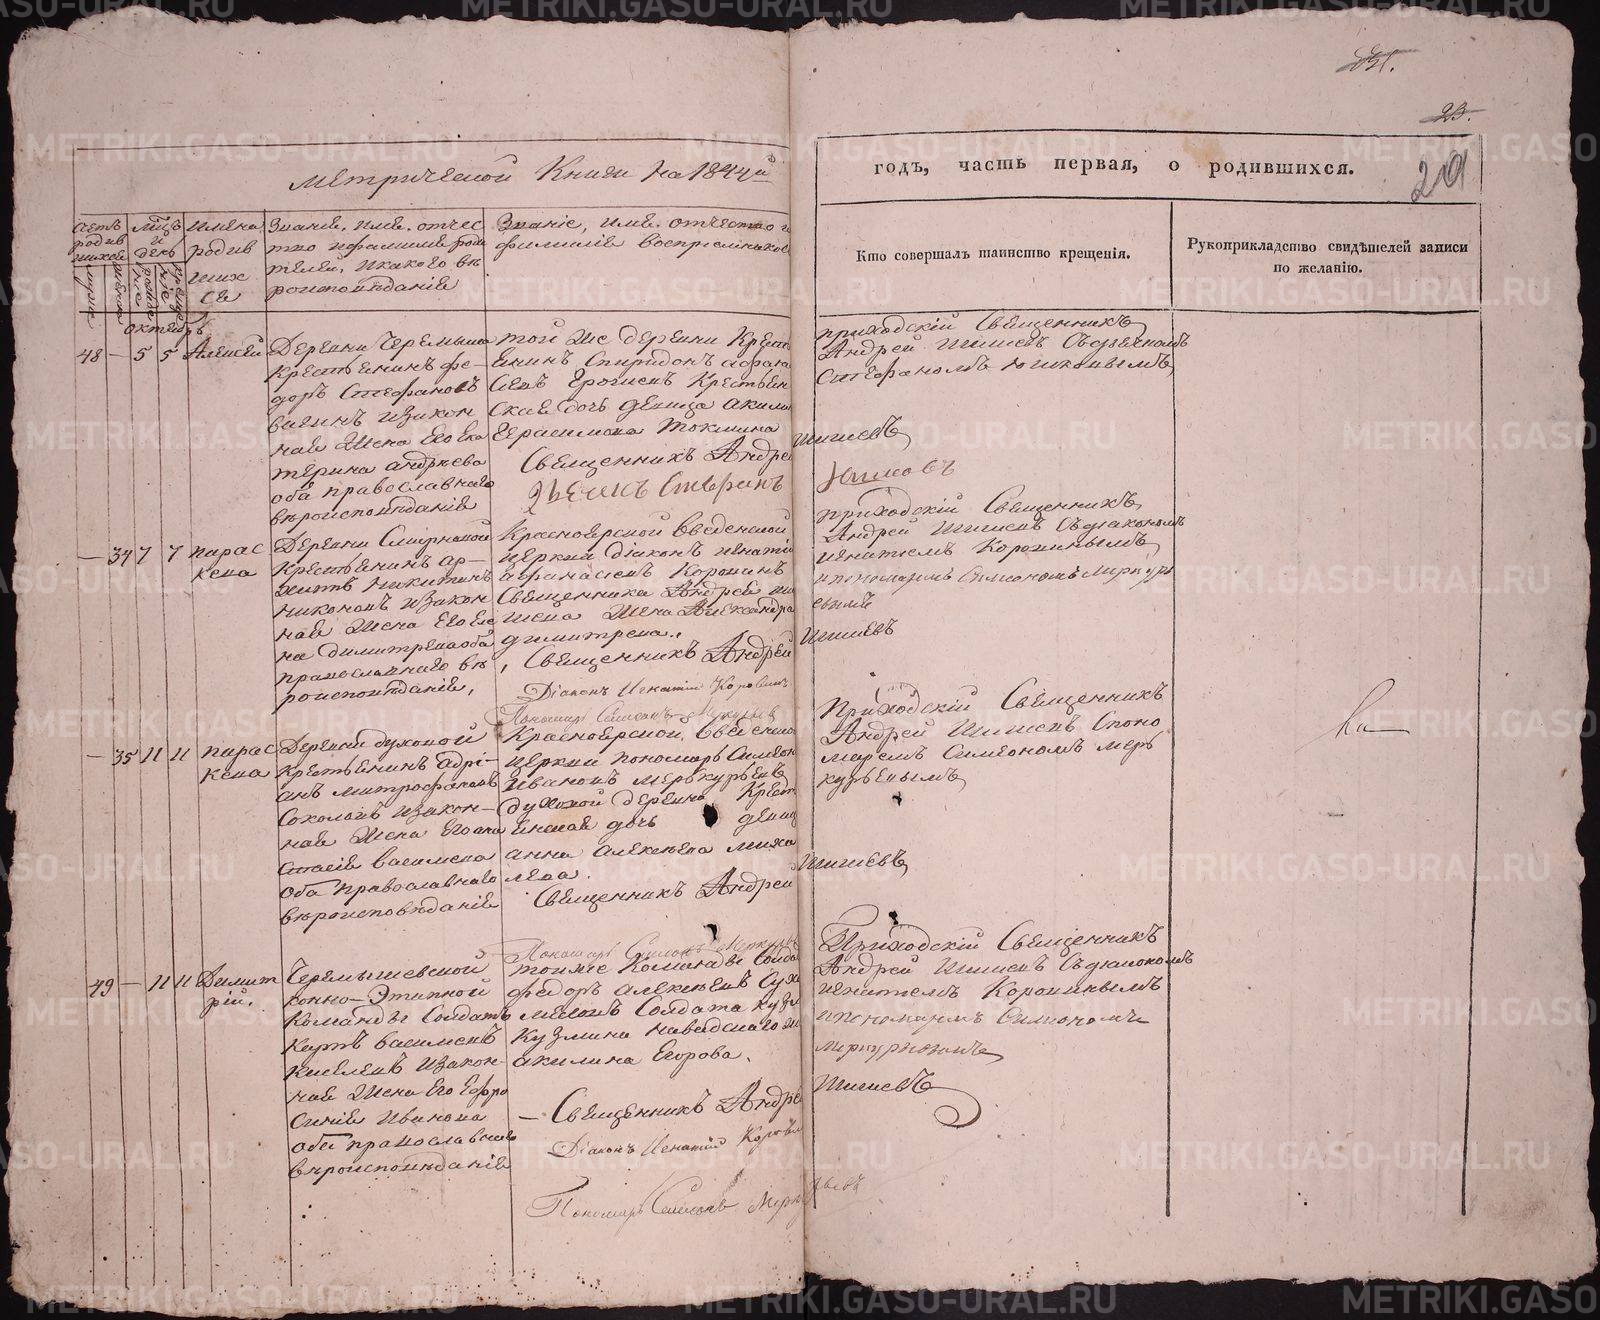 Метрической Книги на 1844й
годъ, часть первая, о родившихся.
201
Имена
родив
ших
ся
Званіе, имя, отчес
тво и фамилія роди
телей, и какого вѣ
роисповѣданія
Званіе, имя, отчество и
фамилія воспреемников
Кто совершалъ таинство крещенія.
Рукоприкладство свидѣтелей записи
по желанію.
октябрь
48 — 5 5 Алексей
Деревни Черемыша
Крестьянинъ Фе-
доръ Стефановъ
и закон
ная жена его Ека
терина Андреева
оба православнаго
вѣроисповѣданія
той же деревни Крест
янинъ Спиридонъ Афана
сьевъ Крестьян
ская дочь девица Акили
Герасимова Токмина
Священникъ Андрей Шишевъ
Стефанъ
приходскій Священникъ
Андрей Шишевъ
Стефаномъ
— 34 7 7 Парас
кева
Деревни Смирновой
Крестьянинъ Ар-
Никитинъ
Никоновъ и закон
ная жена его Еле
на Димитрева оба
православнаго вѣ
роисповѣданія,
Красноярской Введенской
церкви Діаконъ Игнатій
Афанасьевъ Коровинъ
Священника Андрея Ши
шева жена Александра
Димитрева.
Священникъ Андрей Шишевъ
Діаконъ Игнатій Коровинъ
Пономарь Симеонъ Меркурьев
приходскій Священникъ
Андрей Шишевъ Съ діакономъ
Игнатіемъ Коровинымъ
и пономаремъ Симеономъ Меркурь
евымъ
— 35 11 11 Парас
кева
Деревни Духовой
Крестьянинъ Адрі-
анъ Митрофановъ
Соколовъ и закон-
ная жена его Ана
стасія Васильева
оба православнаго
вѣроисповѣданія
Красноярской Введенско
церкви пономарь Симеон
Ивановъ Меркурьевъ
Духовой деревни Крест
янская дочь девиц
Анна Алексеева Миха
лева.
Священникъ Андрей Шишевъ
Пономарь Симеонъ Меркурьев
Приходскій Священникъ
Андрей Шишевъ С поно
маремъ Симеономъ Мерь
курьевымъ
49 — 11 11 Димит
рій.
Черемышевской
конно-Этапной
Команды Солдатъ
Василевъ
Киселевъ и закон-
ная жена его Евфро
синія Иванова
оба православнаго
вѣроисповѣданія
той же Команды Солда
Федоръ Алексеевъ
Солдата Кузм
Кузмина
Акилина Егорова.
— Священникъ Андрей Шишевъ
Діаконъ Игнатій Корови
Пономарь Симеонъ Меркурьевъ
Приходскій Священникъ
Андрей Шишевъ Съ діакономъ
Игнатіемъ Коровинымъ
и пономаремъ Симеономъ
Меркурьевымъ
METRIKI.GASO-URAL.RU